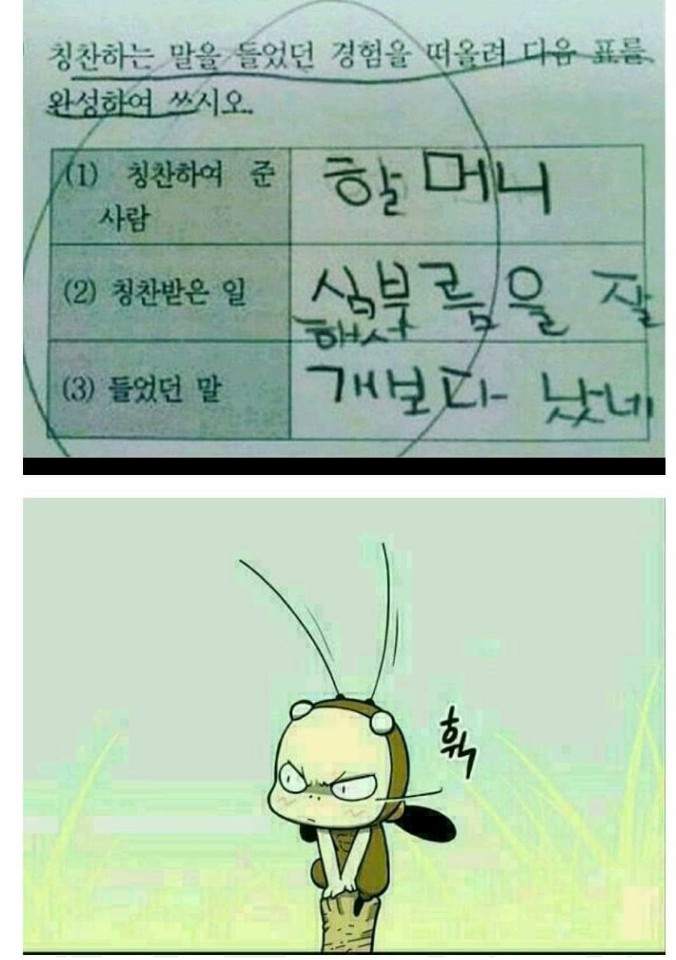 칭찬하는 말을 들었던 경험을 떠올려 다음 표를
완성하여 쓰시오.
(1) 칭찬하여 준
사람
할머니
(2) 칭찬받은 일
심부름을 잘
해서
(3) 들었던 말
개보다 낫네
휙